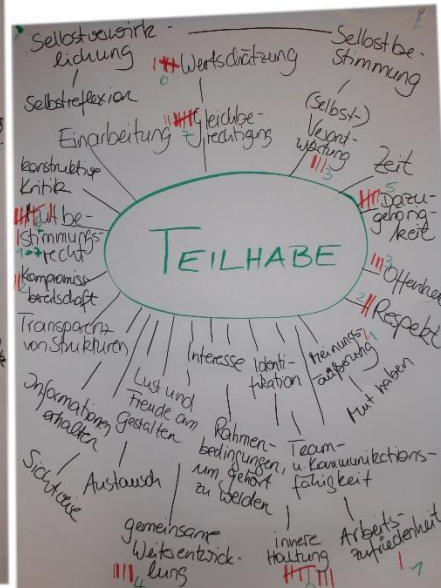 Selbstverwirk-
lichung
Selbstbe-
stimmung
Wertschätzung
6
Selbstreflexion
(Selbst-)
Verant-
wortung
3
Einarbeitung
Gleichbe-
rechtigung
7
Zeit
konstruktive
Kritik
5
Dazu-
gehörig-
keit
Mitbe-
stimmungs-
recht
TEILHABE
3
Offenheit
Kompromiss
bereitschaft
2
Respekt
Transparenz
von Strukturen
Interesse
Identi-
fikation
Meinungs-
äußerung
1
Mut haben
Informationen
erhalten
Lust und
Freude am
Gestalten
Rahmen-
bedingungen,
um gehört
zu werden
Team-
u. Kommunikations-
fähigkeit
Sichtweise
Austausch
gemeinsame
Weiterentwick-
lung
4
innere
Haltung
Arbeits-
zufriedenheit
1